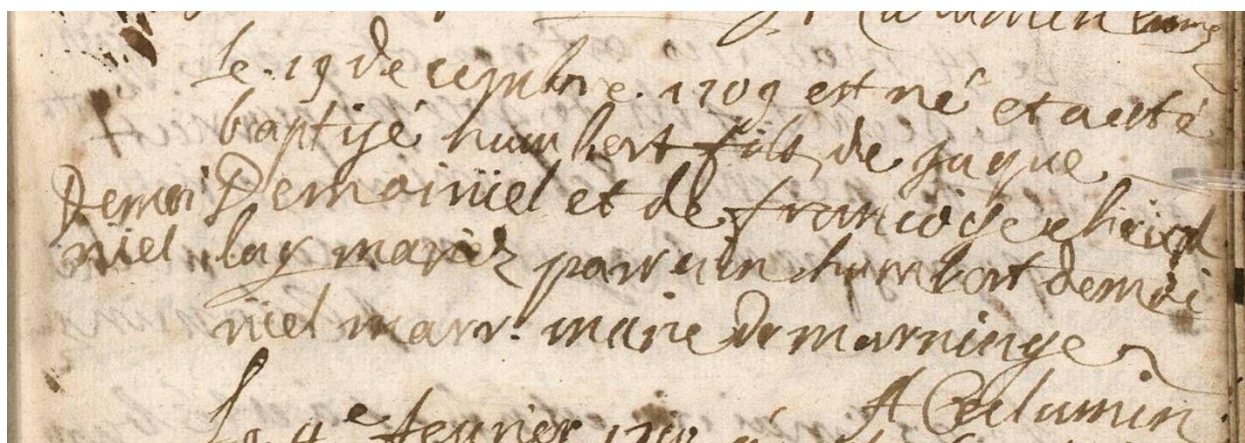 Le 19 decembre 1709 est né et a esté
baptisé humbert fils de jaque
Demoi Demoiniel et de francoise
niel lay mariez parrein humbert demoi
niel marr. marie De marninge
Le 4e feurier 1710